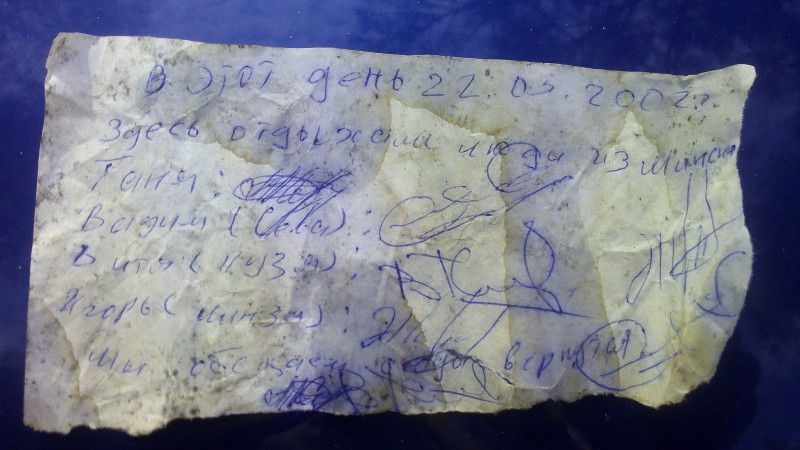 В этот день 22.03.2002г.
Здесь отдыхали люди из Минска
Таня:
Вадим (Сева):
Витя (Кузя):
Игорь (Линза):
Мы обещаем сюда вернутся.